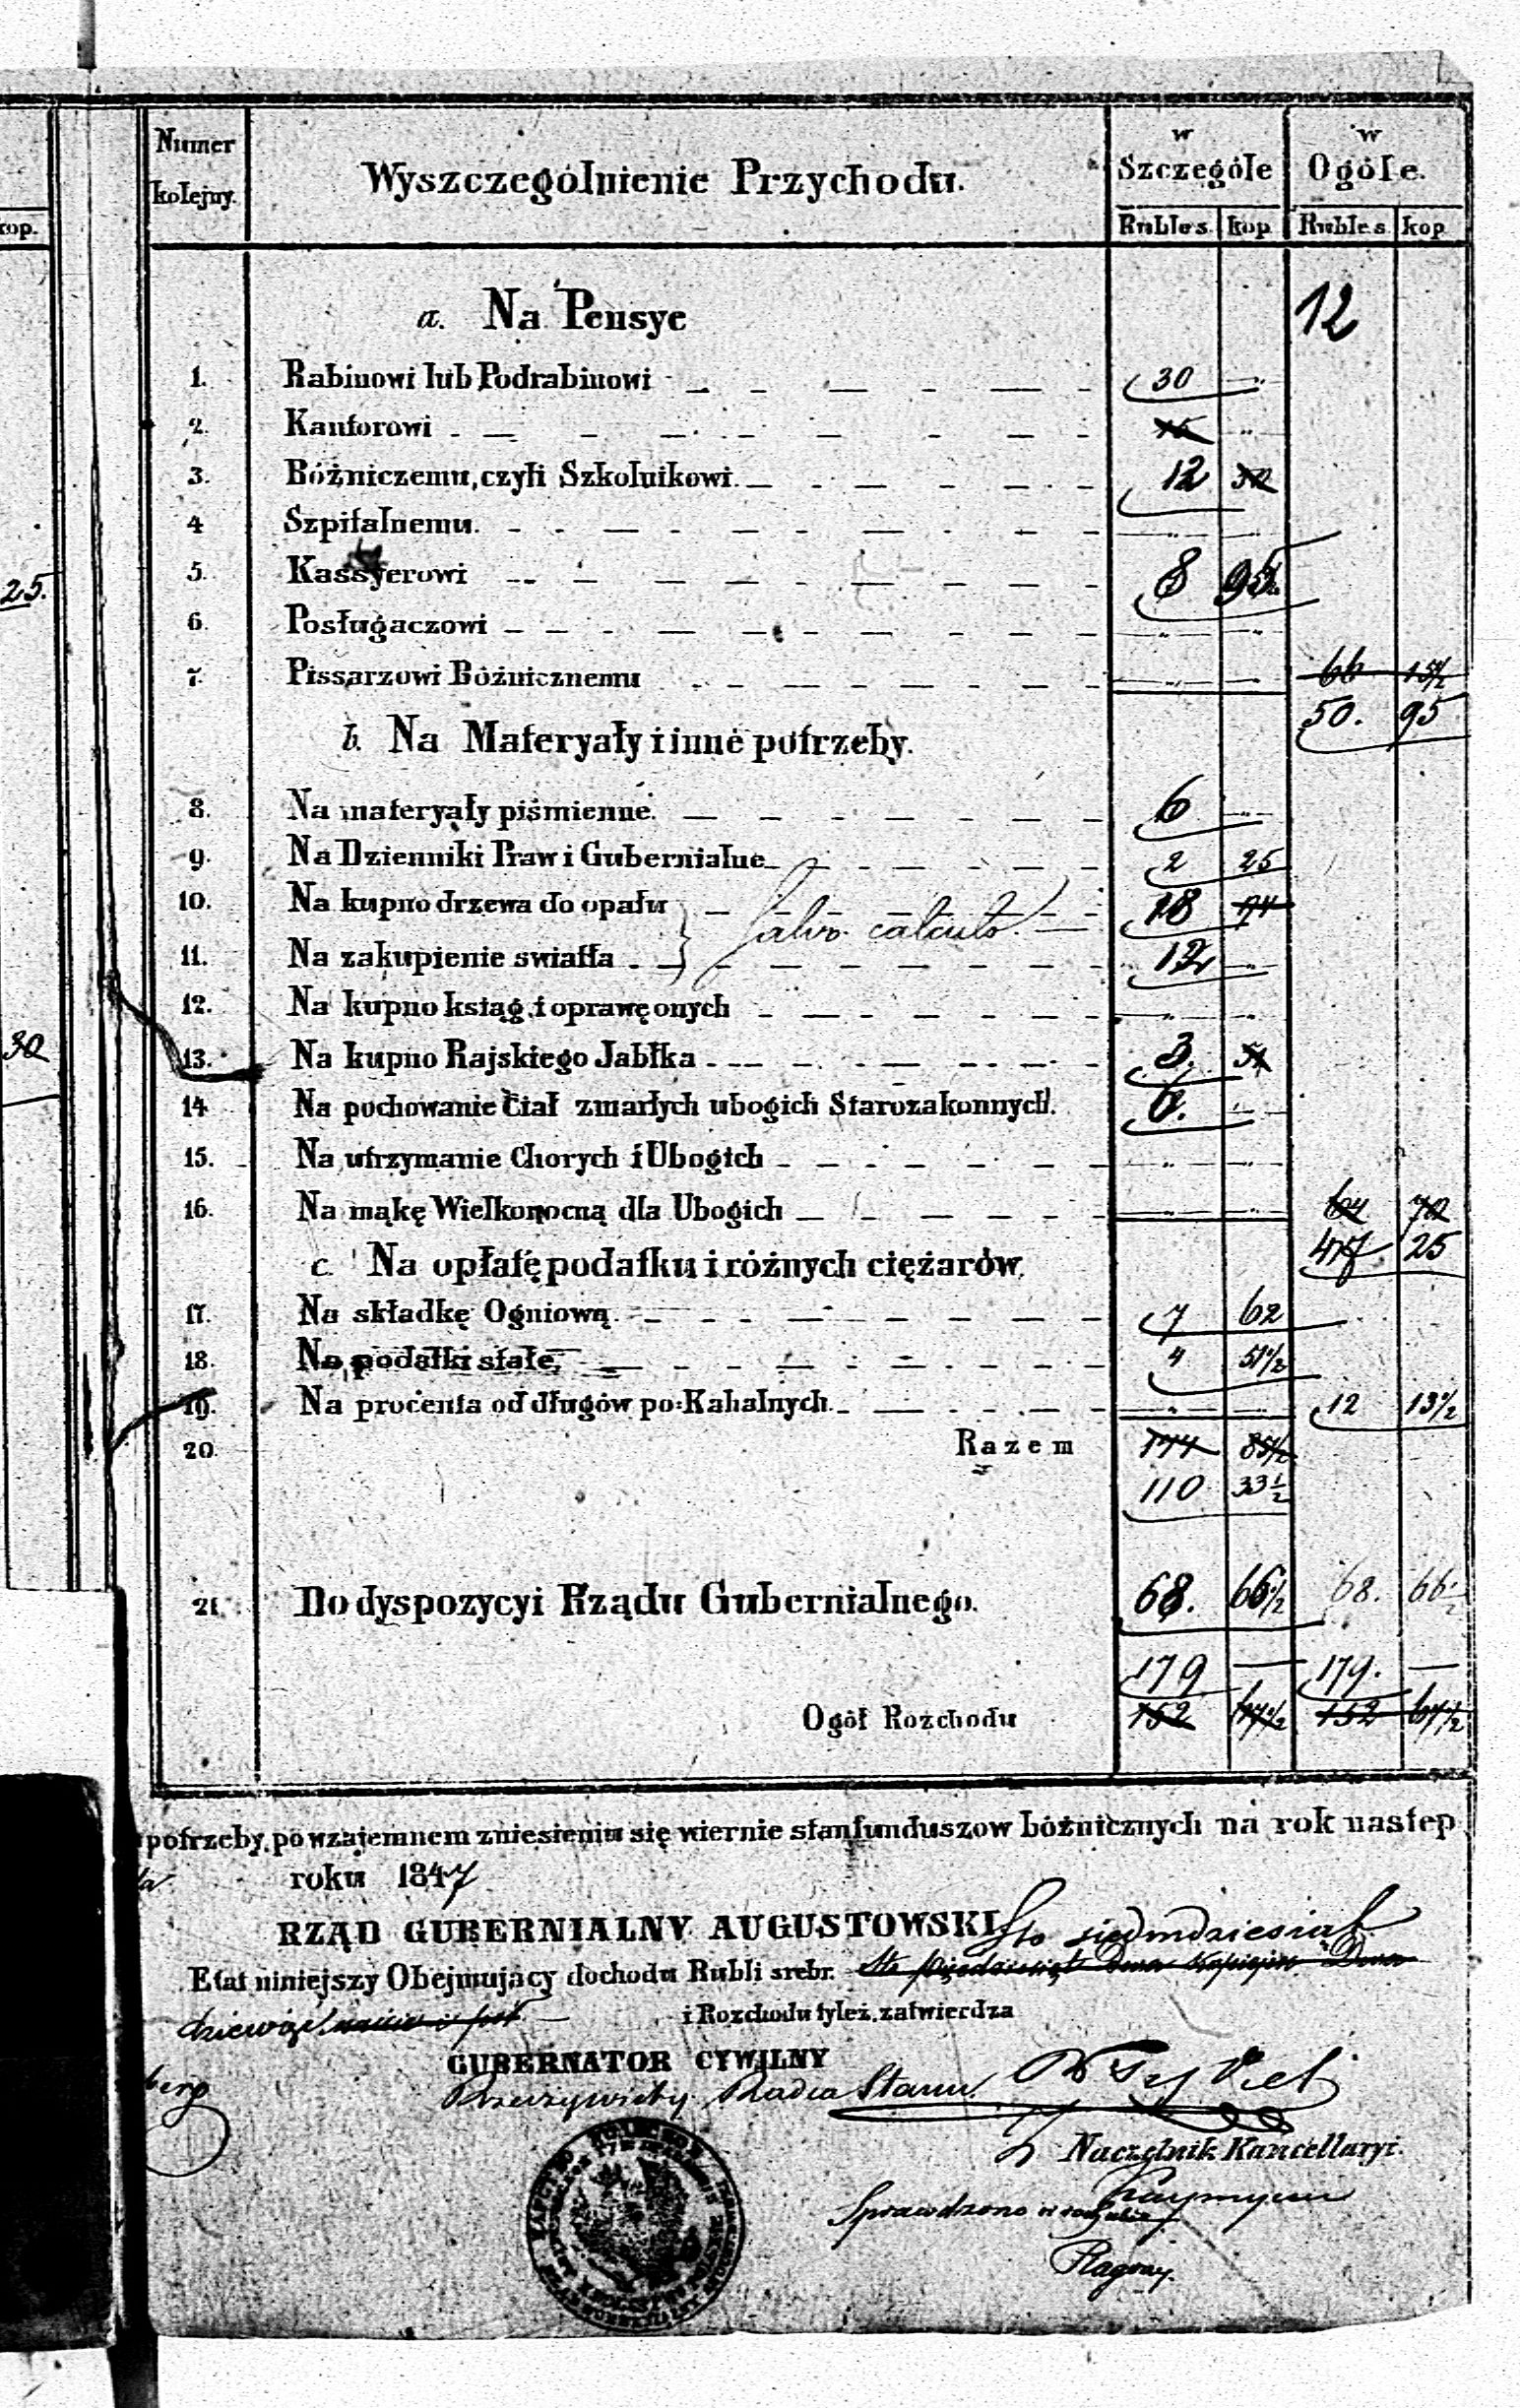 Numer kolejny. Wyszczególnienie Przychodu. w Szczególe w Ogóle.
kop. Rubles. kop. Rubles. kop.
a. Na Pensye 12
1. Rabinowi lub Podrabinowi 30
2. Kantorowi 15
3. Bóżniczemu, czyli Szkolnikowi. 12 30
4 Szpitalnemu.
5. Kassyerowi 8 95
25.
6. Posługaczowi
7. Pissarzowi Bóżnicznemu 66 15 1/2
50. 95
b. Na Materyały i inne potrzeby.
8. Na materyały piśmienne. 6
9. Na Dzienniki Praw i Gubernialne 2 25
10. Na kupno drzewa do opału } Salvo calculo. 18
11. Na zakupienie swiatła 12
12. Na kupno ksiąg i oprawę onych
30
13. Na kupno Rajskiego Jabłka 3.
14 Na pochowanie Ciał zmarłych ubogich Starozakonnych. 6.
15. Na utrzymanie Chorych i Ubogich
16. Na mąkę Wielkonocną dla Ubogich 64 70
47 25
c. Na opłatę podatku i różnych ciężarów.
17. Na składkę Ogniową. 7 62
18. Na podatki stałe, 4 51 1/2
19. Na procenta od długów po-Kahalnych. 12 13 1/2
20. Razem
110 33 1/2
21. Do dyspozycyi Rządu Gubernialnego. 68. 66 1/2 68. 66 1/2
179 — 179. —
Ogół Rozchodu 152 152
potrzeby, po wzajemnem zniesieniu się wiernie stan funduszow bóżnicznych na rok nastep
roku 1847
RZĄD GUBERNIALNY AUGUSTOWSKI Sto siedmdziesiąt
Etat niniejszy Obejmujący dochodu Rubli srebr. Sto pięćdziesiąt Dwa Kopiejek
dziewięć i Rozchodu tyleż, zatwierdza
GUBERNATOR CYWILNY
berg Rzeczywisty Radca Stanu
Naczelnik Kancellaryi.
Sprawdzono